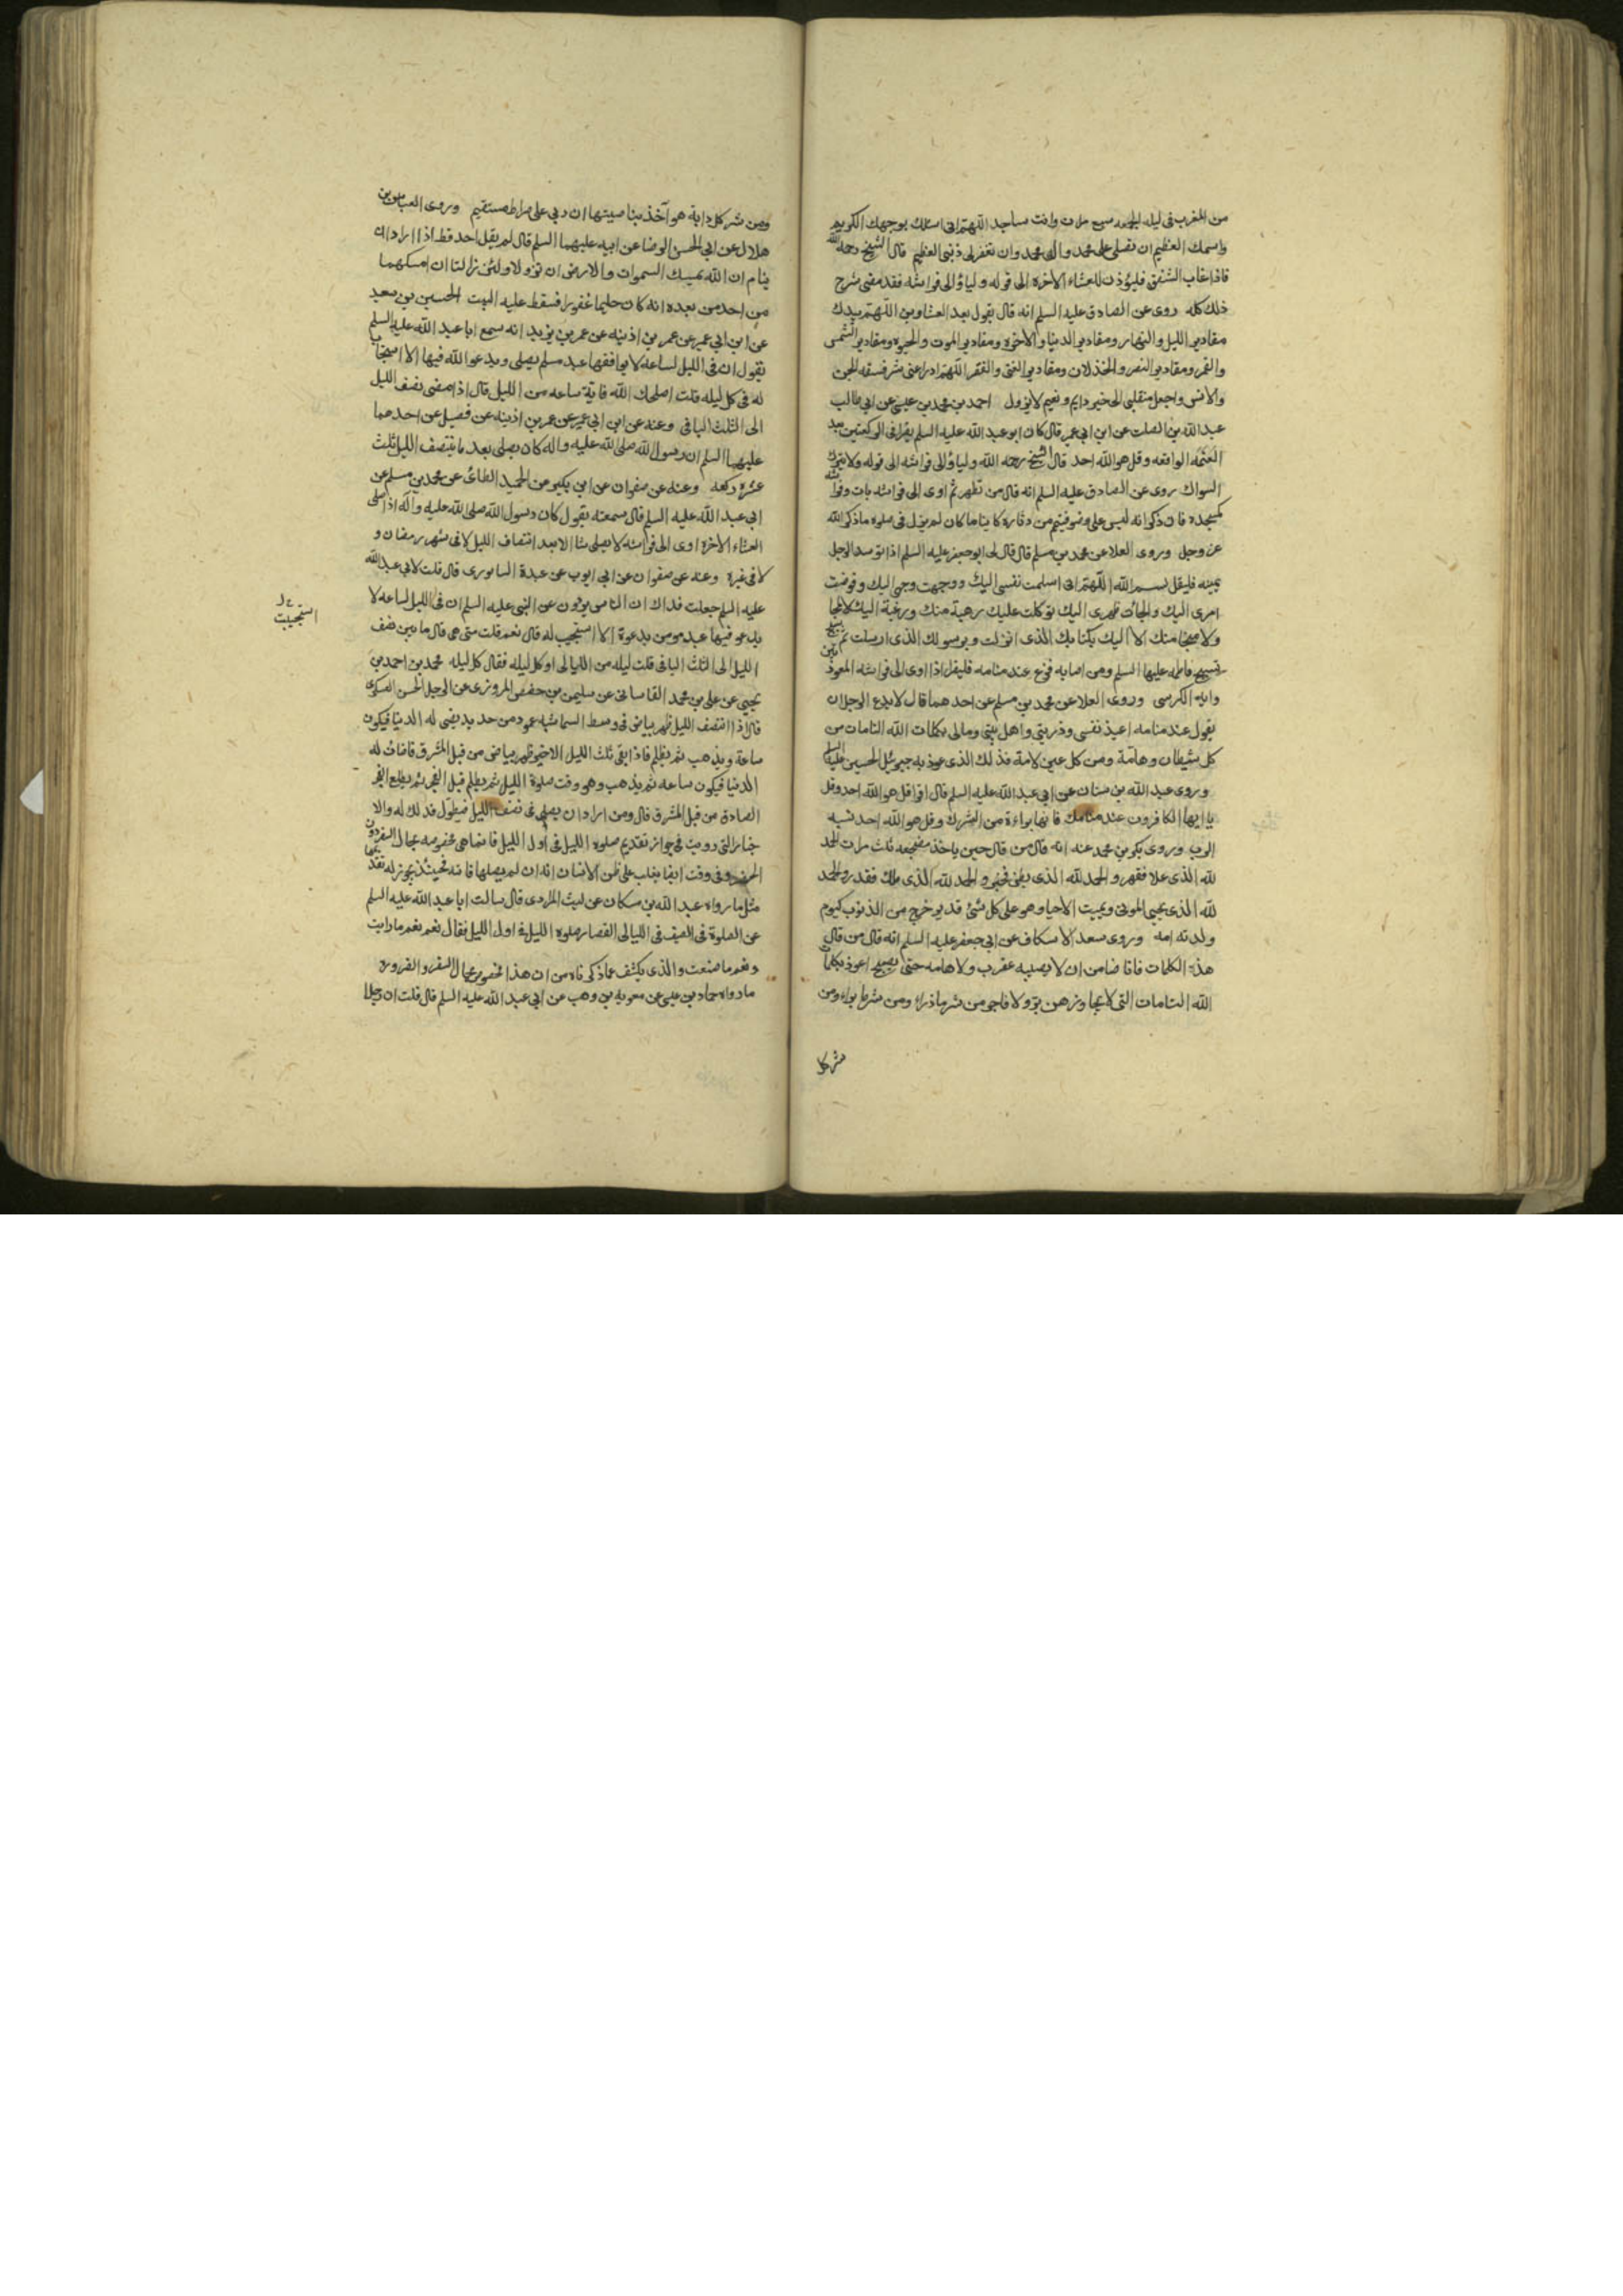 من المغرب فى ليله الجمعه سبع مرات وانت ساجد اللهم انى اسئلك بوجهك الكريم
واسمك العظيم ان تصلى على محمد وال محمد وان تغفر لى ذنبى العظيم قال الشيخ رحمه الله
فاذا غاب الشفق فليؤذن للعشاء الآخرة الى قوله وليأو الى فراشه فقد مضى شرح
ذلك كله روى عن الصادق عليه السلم انه قال يقول بعد العشاوين اللهم بيدك
مقادير الليل والنهار ومقادير الدنيا والاخرة ومقادير الموت والحيوه ومقادير الشمس
والقمر ومقادير النصر والخذلان ومقادير الغنى والفقر اللهم ادراعنى شر فسقه الجن
والانس واجعل منقلبى الى خير دايم ونعيم لا يزول احمد بن محمد بن عيسى عن ابى طالب
عبد الله بن الصلت عن ابن ابى عمير قال كان ابو عبد الله عليه السلم يقرا فى الركعتين بعد
العتمه الواقعه وقل هو الله احد قال الشيخ رحمه الله وليأو الى فراشه الى قوله ولا يترك
السواك روى عن الصادق عليه السلم انه قال من تطهر ثم اوى الى فراشه بات وفراشه
كمسجده فان ذكر انه ليس على وضو فيتيمم من دثاره كاينا ما كان لم يزل فى صلوه ما ذكر الله
عز وجل وروى العلا عن محمد بن مسلم قال قال لى ابو جعفر عليه السلم اذا توسد الرجل
يمينه فليقل بسم الله اللهم انى اسلمت نفسى اليك ووجهت وجهى اليك وفوضت
امرى اليك والجأت ظهرى اليك توكلت عليك رهبة منك ورغبة اليك لا ملجا
ولا منجا منك الا اليك بكتابك الذى انزلت وبرسولك الذى ارسلت ثم يسبح
تسبيح فاطمه عليها السلم ومن اصابه فزع عند منامه فليقرا اذا اوى الى فراشه المعوذتين
وايه الكرسى وروى العلا عن محمد بن مسلم عن احدهما قال لا يدع الرجل ان
يقول عند منامه اعيذ نفسى وذريتى واهل بيتى ومالى بكلمات الله التامات من
كل شيطان وهامة ومن كل عين لامة فذلك الذى عوذ به جبرئيل الحسين عليه السلم
وروى عبد الله بن سنان عن ابى عبد الله عليه السلم قال اقرا قل هو الله احد وقل
يا ايها الكافرون عند منامك فانها براءة من الشرك وقل هو الله احد نسبه
الرب وروى بكر بن محمد عنه انه قال من قال حين ياخذ مضجعه ثلث مرات الحمد
لله الذى علا فقهر والحمد لله الذى بطن فخبر والحمد لله الذى ملك فقدر والحمد
لله الذى يحيى الموتى ويميت الاحيا وهو على كل شئ قدير خرج من الذنوب كيوم
ولدته امه وروى سعد الاسكاف عن ابى جعفر عليه السلم انه قال من قال
هذه الكلمات فانا ضامن ان لا يصيبه عقرب ولا هامه حتى يصبح اعوذ بكلمات
الله التامات التى لا يجاوزهن بر ولا فاجر من شر ما ذراء ومن شر ما براء ومن
شر كل
ومن شر كل دابة هو آخذ بناصيتها ان ربى على صراط مستقيم وروى العباس بن
هلال عن ابى الحسن الرضا عن ابيه عليهما السلم قال لم يقل احد قط اذا اراد ان
ينام ان الله يمسك السموات والارض ان تزولا ولئن زالتا ان امسكهما
من احد من بعده انه كان حليما غفورا فسقط عليه البيت الحسين بن سعيد
عن ابن ابى عمير عن عمر بن اذينه عن عمر بن يزيد انه سمع ابا عبد الله عليه السلم
يقول ان فى الليل لساعه لا يوافقها عبد مسلم يصلى ويدعوا الله فيها الا استجاب
له فى كل ليله قلت اصلحك الله فاية ساعه من الليل قال اذا مضى نصف الليل
الى الثلث الباقى وعنه عن ابن ابى عمير عن عمر بن اذينه عن فضيل عن احدهما
عليهما السلم ان رسول الله صلى الله عليه واله كان يصلى بعد ما ينتصف الليل ثلث
عشره ركعه وعنه عن صفوان عن ابن بكير عن الحميد الطائى عن محمد بن مسلم عن
ابى عبد الله عليه السلم قال سمعته يقول كان رسول الله صلى الله عليه وآله اذا صلى
العشاء الآخرة اوى الى فراشه لا يصلى شا الا بعد انتصاف الليل لا فى شهر رمضان و
لا فى غيره وعنه عن صفوان عن ابى ايوب عن عبدة السابورى قال قلت لابى عبد الله
عليه السلم جعلت فداك ان الناس يروون عن النبى عليه السلم ان فى الليل لساعه لا
يدعو فيها عبد مومن بدعوة الا استجيب له قال نعم قلت متى هى قال ما بين نصف
الليل الى الثلث الباقى قلت ليله من الليالى او كل ليله فقال كل ليله محمد بن احمد بن
يحيى عن على بن محمد القاسانى عن سليمن بن حفص المروزى عن الرجل الحسن العسكرى
قال اذا انتصف الليل ظهر بياض فى وسط السما شبه عمود من حديد يضى له الدنيا فيكون
ساعة ويذهب ثم يظلم فاذا بقى ثلث الليل الاخير ظهر بياض من قبل المشرق فاضات له
الدنيا فيكون ساعه ثم يذهب وهو وقت صلوة الليل ثم يظلم قبل الفجر ثم يطلع الفجر
الصادق من قبل المشرق قال ومن اراد ان يصلى فى نصف الليل فيطول فذلك له والا
خبار التى رويت فى جواز تقديم صلوه الليل فى اول الليل فانما هى مخصوصه بحال السفر دون
الحضر وفى وقت ايضا يغلب على ظن الانسان انه ان لم يصلها فاته فحينئذ يجوز له تقديمها
مثل ما رواه عبد الله بن مسكان عن ليث المرادى قال سالت ابا عبد الله عليه السلم
عن الصلوة فى الصيف فى الليالى القصار صلوه الليل فى اول الليل فقال نعم نعم ما رايت
ونعم ما صنعت والذى يكشف عما ذكرناه من ان هذا مخصوص بحال السفر والضروره
ما رواه حماد بن عيسى عن معويه بن وهب عن ابى عبد الله عليه السلم قال قلت ان رجلا
استجيبت